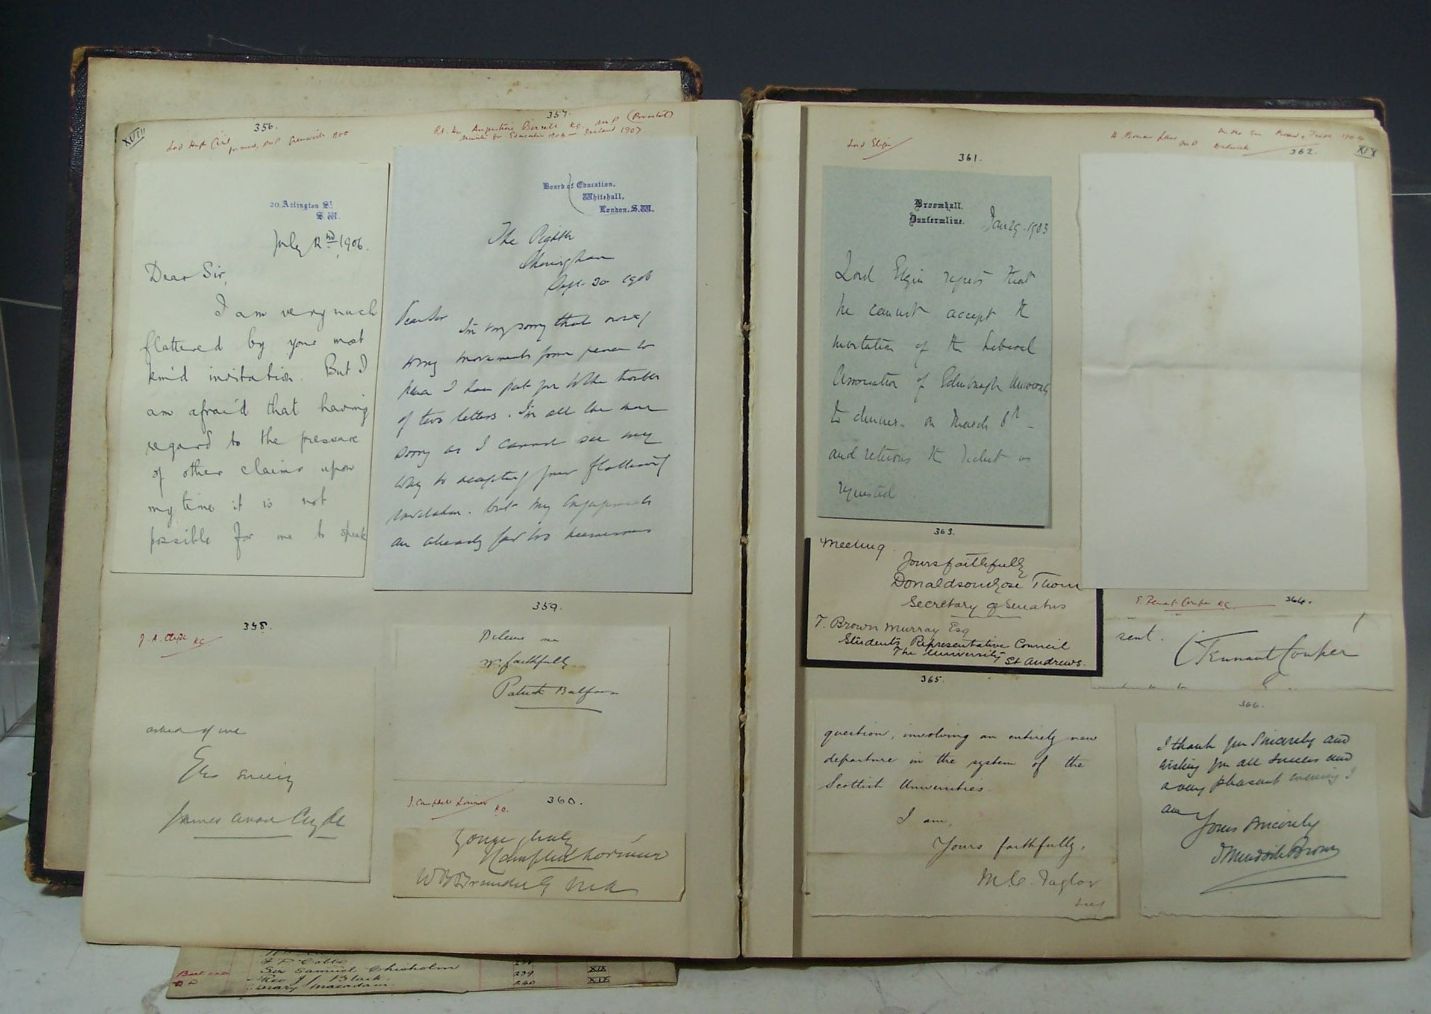 XVIII
356.
20, Arlington St
S.W.
July 2nd, 1906.
Dear Sir,
I am very much
flattered by your most
kind invitation. But I
am afraid that having
regard to the pressure
of other claims upon
my time it is not
possible for me to speak
357.
Rt. Hon Augustine Birrell KC MP (Bristol)
Minister for Education 1906 Ireland 1907
Board of Education,
Whitehall,
London, S.W.
The
Sheringham
Sept. 30 1906
Dear Sir
I'm very sorry that owing
to my movements from place to
place I have put you to the trouble
of two letters. I'm all the more
sorry as I cannot see my
way to accepting your flattering
invitation. but my engagements
are already far too numerous
358.
J. A. Clyde KC
asked of me
James Avon Clyde
359.
Believe me
Yrs faithfully
Patrick Balfour
J. Campbell Lorimer KC.
360.
Yours truly
J Campbell Lorimer
Lord Elgin
361.
Broomhall,
Dunfermline.
Jan 29. 1903
Lord Elgin regrets that
he cannot accept the
invitation of the Liberal
Association of Edinburgh University
to dinner on March 6th –
and returns the ticket as
requested
A Bonar Law MP
Dulwich
362.
XIX
363.
Meeting
Yours faithfully
Donaldson Rose Thom
Secretary of Senatus
T. Brown Murray Esq
Students Representative Council
The University St Andrews.
364.
sent.
C Tennant Couper
365.
question, involving an entirely new
departure in the system of the
Scottish Universities.
I am,
Yours faithfully,
M.C. Taylor
366.
I thank you sincerely and
wishing you all success and
a very pleasant evening I
am
Yours Sincerely
J Murdoch Brown
Sir Samuel Chisholm 239 XIX
Rev J. Black. 240 XIX